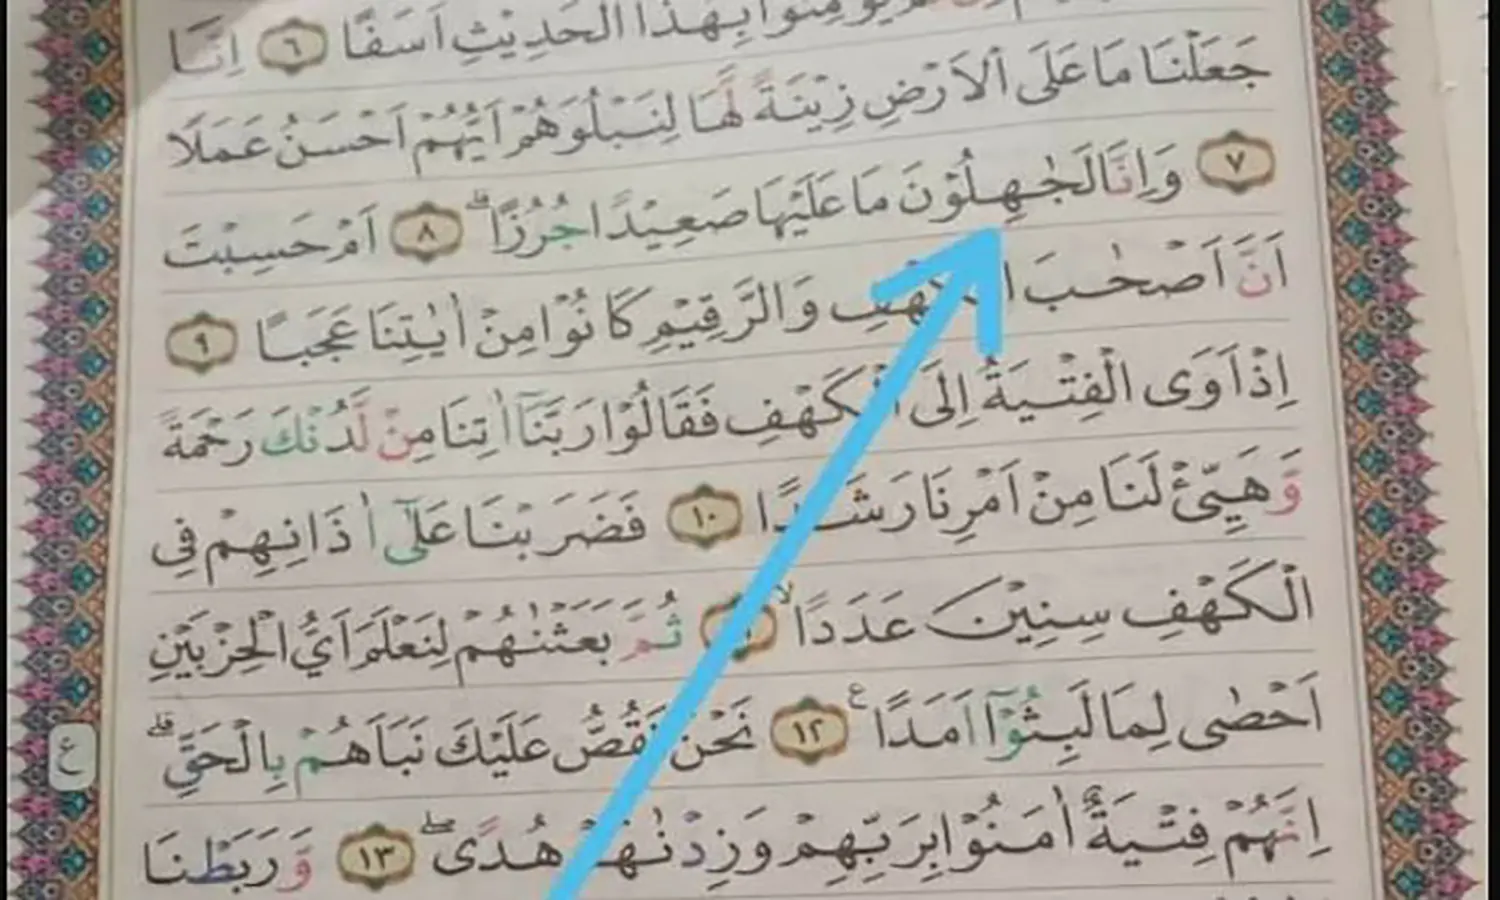 يُؤْمِنُوْا بِهٰذَا الْحَدِيْثِ اَسَفًا ٦ اِنَّا
جَعَلْنَا مَا عَلَى الْاَرْضِ زِيْنَةً لَّهَا لِنَبْلُوَهُمْ اَيُّهُمْ اَحْسَنُ عَمَلًا
٧ وَاِنَّا لَجٰهِلُوْنَ مَا عَلَيْهَا صَعِيْدًا جُرُزًاۗ ٨ اَمْ حَسِبْتَ
اَنَّ اَصْحٰبَ الْكَهْفِ وَالرَّقِيْمِ كَانُوْا مِنْ اٰيٰتِنَا عَجَبًا ٩
اِذْ اَوَى الْفِتْيَةُ اِلَى الْكَهْفِ فَقَالُوْا رَبَّنَآ اٰتِنَا مِنْ لَّدُنْكَ رَحْمَةً
وَّهَيِّئْ لَنَا مِنْ اَمْرِنَا رَشَدًا ١٠ فَضَرَبْنَا عَلٰٓى اٰذَانِهِمْ فِى
الْكَهْفِ سِنِيْنَ عَدَدًاۙ ١١ ثُمَّ بَعَثْنٰهُمْ لِنَعْلَمَ اَيُّ الْحِزْبَيْنِ
اَحْصٰى لِمَا لَبِثُوْٓا اَمَدًا ࣖ ١٢ نَحْنُ نَقُصُّ عَلَيْكَ نَبَاَهُمْ بِالْحَقِّۗ
اِنَّهُمْ فِتْيَةٌ اٰمَنُوْا بِرَبِّهِمْ وَزِدْنٰهُمْ هُدًىۖ ١٣ وَّرَبَطْنَا
ع